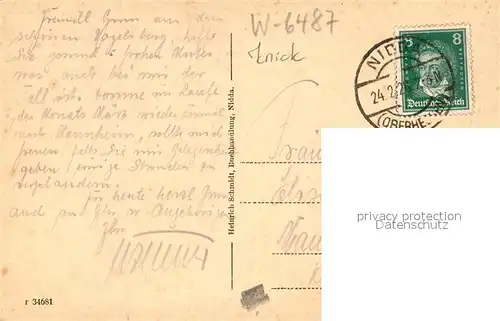 Freundl Gruss aus dem
schönen Vogelsberg, hoffe
Sie gesund & frohen Mutes
was auch bei mir der
Fall ist. Komme im Laufe
des Monats März wieder einmal
nach Mannheim, sollte mich
freuen, falls Sie mir Gelegenheit
geben, einige Stunden zu
verplaudern.
Für heute herzl Gruss
auch an Ihre w Angehörigen
Ihr
r 34681
Heinrich Schmidt, Buchhandlung, Nidda.
W-6487
Knick
8 8
Deutsches Reich
NIDDA
24.2.2
(OBERHE
privacy protection
Datenschutz